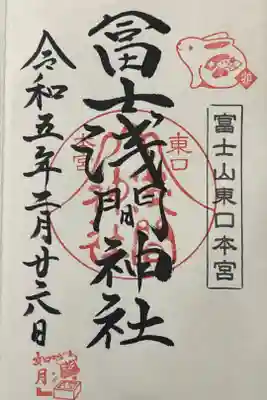 卯
富士山東口本宮
東口
本宮
冨士浅間神社
令和五年二月廿六日
如月